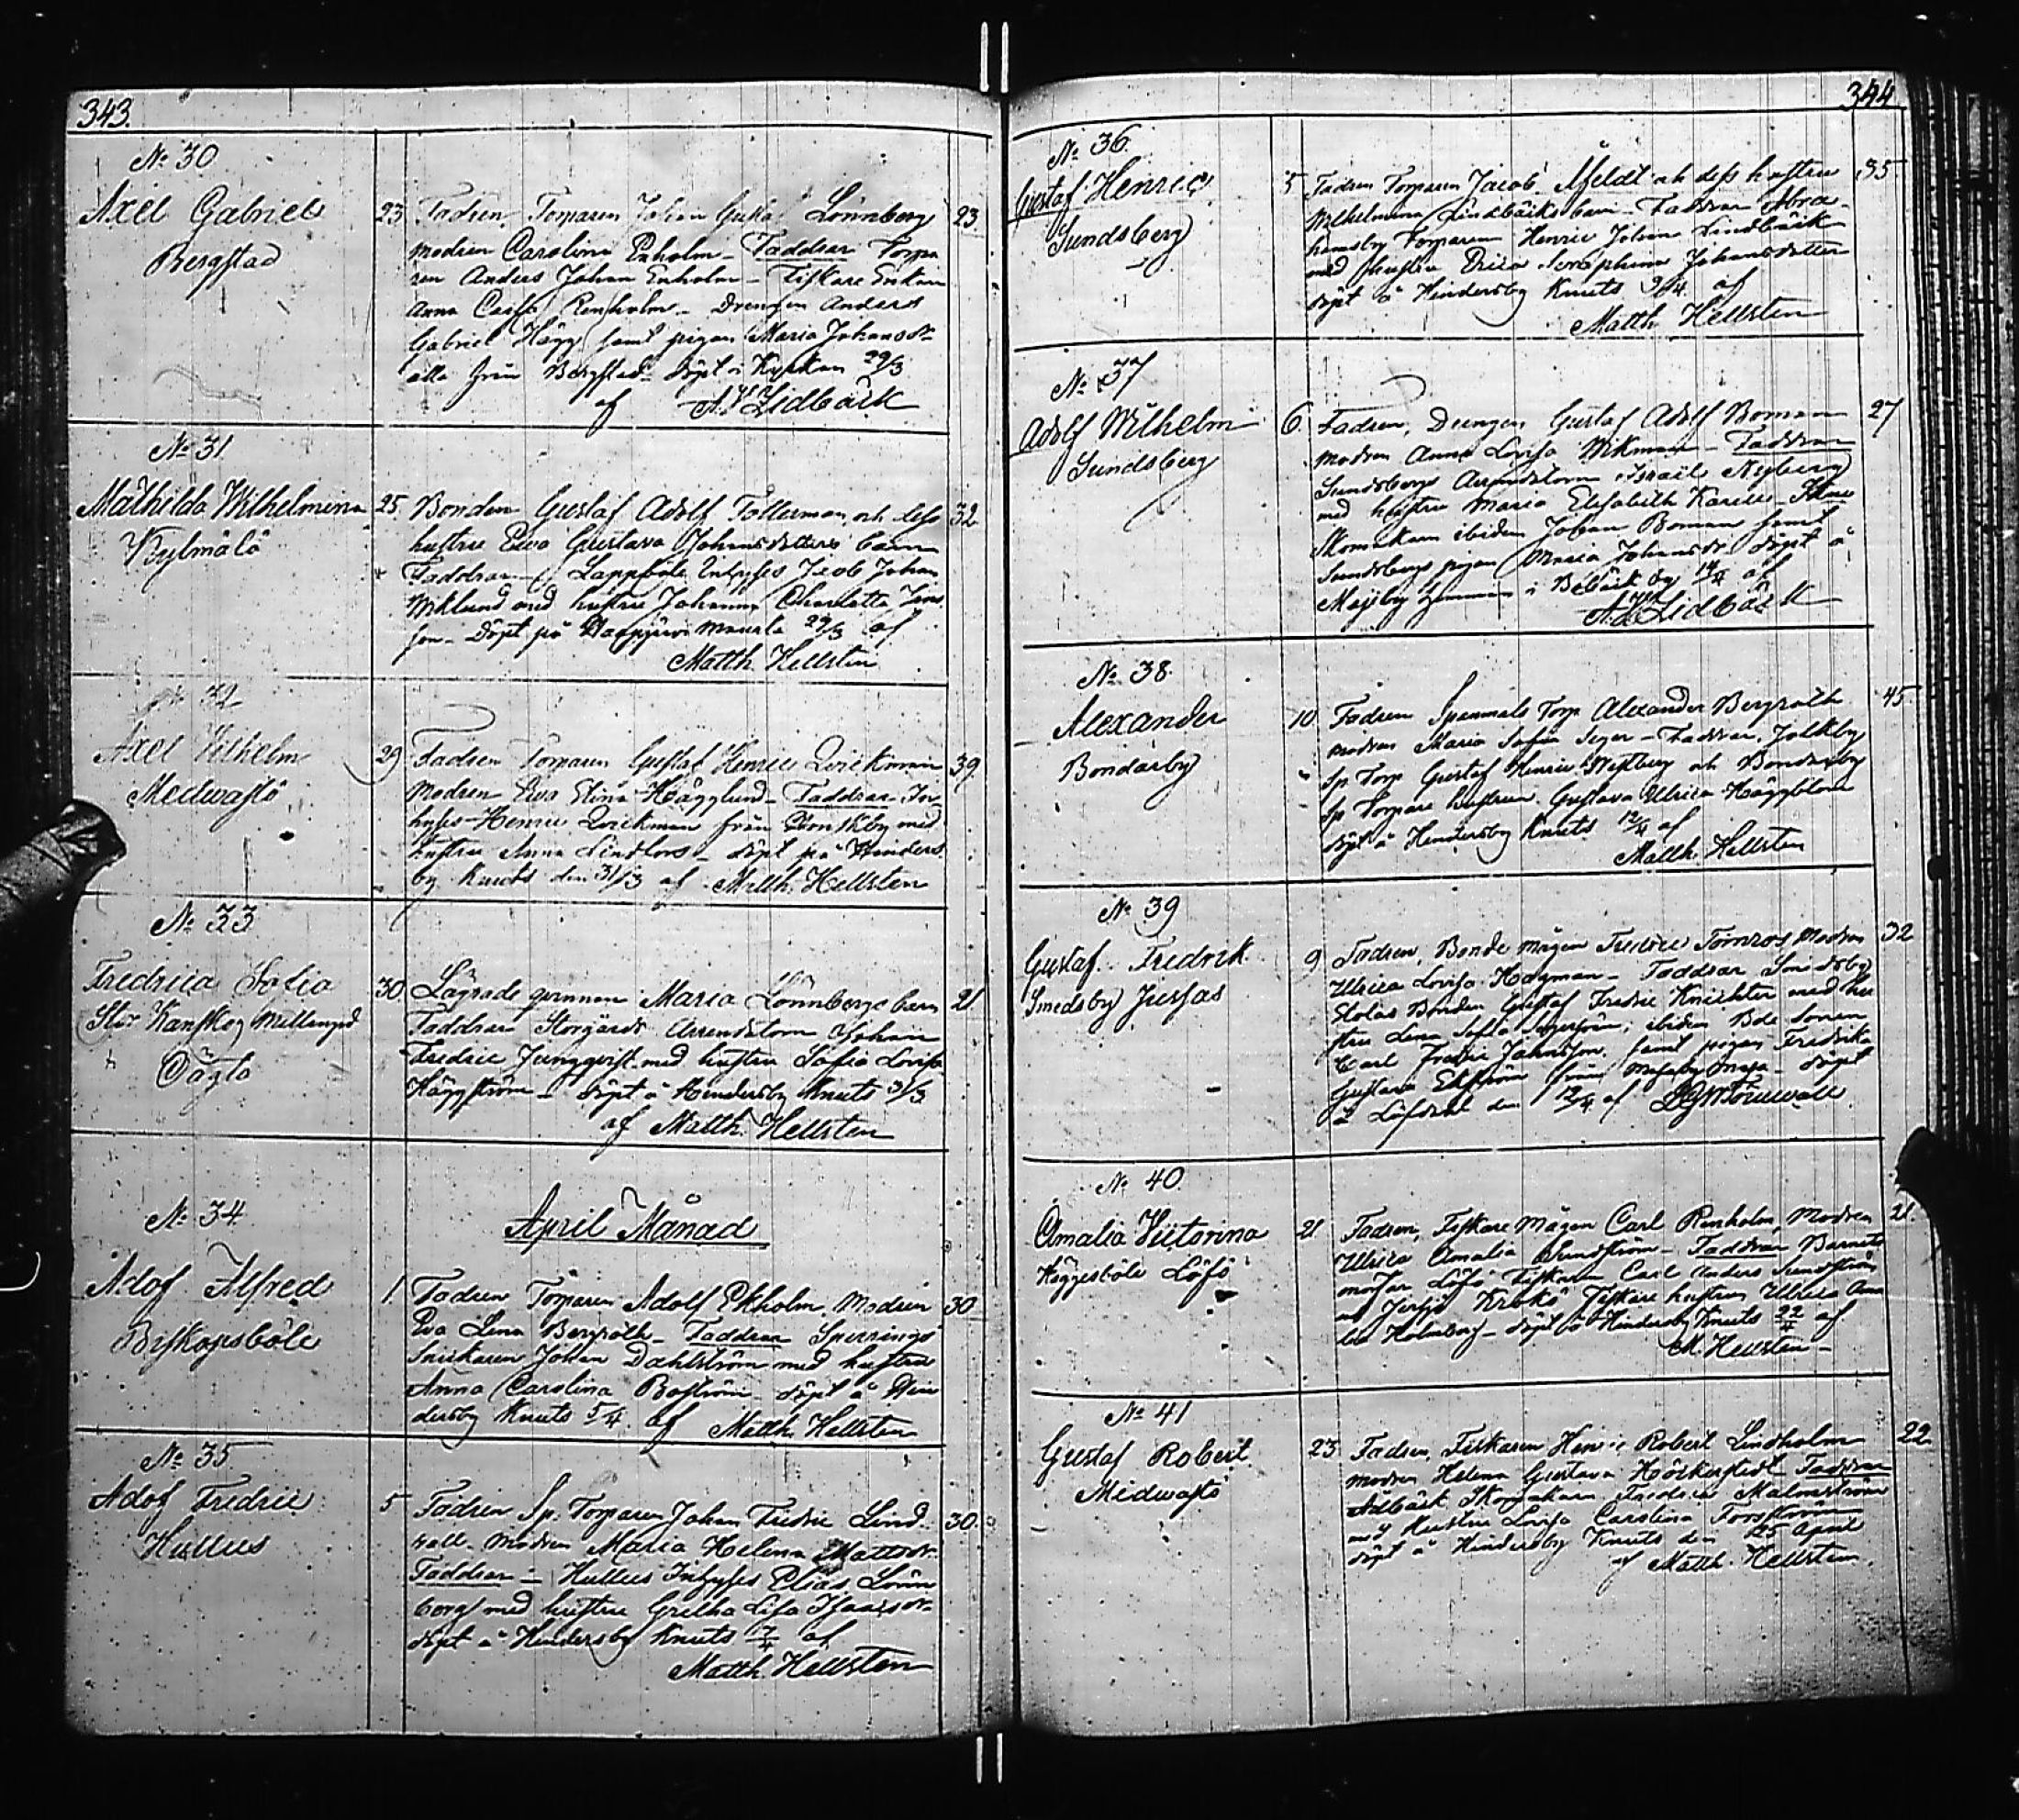 343.
No 30
Axel Gabriel
Bergstad
23 Fadren Torparen Johan Gustaf Lönnberg 23
modren Carolina Enholm – Faddrar Torpa
ren Anders Johan Enholm – Fiskare Enkan
Anna Caisa Renholm – Drengen Anders
Gabriel Hägg samt pigan Maria Johansdr
alla från Bergstad döpt i Kyrkan 29/3
af A. V. Lidbäck
No 31
Mathilda Wilhelmina
Kylmälä
25. Bonden Gustaf Adolf Tollerman och dess 32
hustru Ewa Gustava Johansdotters barn
Faddrar – Lappböle Inhyses Jacob Johan
Wiklund med hustru Johanna Charlotta Jans
son – Döpt på 29/3 af
Matth. Hellsten
No 32
Axel Wilhelm
Medwastö
29 Fadren Torparen Gustaf Henric Qvickman 39
Modren Eva Stina Hägglund – Faddrar In-
hyses Henric Qvickman från med
hustru Anna Lindfors – döpt på Hinders
by Knuts den 31/3 af Matth. Hellsten
No 33
Fredrica Sofia
Stor Kanskog
Oägta
30 Lägrade qvinnan Maria Lönnbergs barn 21
Faddrar Storgårds Arrendatorn Johan
Fredric Ljungqvist med hustru Sofia Lovisa
Häggström – döpt å Hindersby Knuts 31/3
af Matth. Hellsten
April Månad
No 34
Adof Alfred
Biskopsböle
1. Fadren Torparen Adolf Ekholm, Modren 30
Eva Lena Bergroth – Faddrar Sperrings
Snickaren Johan Dahlström med hustru
Anna Carolina Boström – döpt å Hin
dersby Knuts 5/4 af Matth. Hellsten
No 35
Adof Fredric
Hullus
5 Fadren Sp. Torparen Johan Fredric Lind 30.
vall – Modren Maria Helena Mattsdr
Faddrar – Hullus Inhyses Elias Lönn
berg med hustru Gretha Lisa Isaacsdr
döpt å Hindersby Knuts 7/4 af
Matth. Hellsten
344
No 36.
Gustaf Henric
Sundsberg
5 Fadren Torparen Jacob Åfeldt och dess hustru 35
Wilhelmina Lindbäcks barn – Faddrar Abra-
hamsby Torparen Henric Johan Lindbäck
med hustru Erica Seraphina Johansdotter
döpt å Hindersby Knuts 9/4 af
Matth Hellsten
No 37
Adolf Wilhelm
Sundsberg
6. Fadren, Drengen Gustaf Adolf Boman 27
modren Anna Lovisa Wikman – Faddrar
Sundsbergs Arrendatorn Israel Nyberg
med hustru Maria Elisabeth
Skomakarn ibidem Johan Boman samt
Sundsbergs pigan Maria Johansdr döpt å
i Bobäck by 14/4 af
A. V. Lidbäck
No 38.
Alexander
Bondarby
10. Fadren Spannmåls Torp Alexander Bergroth 45
modren Maria Sofia Seger – Faddrar, Jolkby
Sp. Torp Gustaf Henric Westberg och Bondarby
Sp Torpare hustrun Gustava Ulrica Häggblom
döpt å Hindersby Knuts 12/4 af
Matth. Hellsten
No 39
Gustaf Fredrik
Smedsby Jussas
9 Fadren, Bonde mågen Fredric Törnros Modren 32
Ulrica Lovisa Hagman – Faddrar Smedsby
Stolas Bonden Gustaf Fredric Knichter med hu
stru Lena Sofia ibidem Bde Sonen
Carl Fredric Johansson samt pigan Fredrika
Gustava Ekström från – döpt
å den 12/4 af
No 40.
Amalia Victorina
Häggesböle Löfö
21. Fadren, Fiskare Mågen Carl Renholm Modren 21.
Ulrica Amalia Sundström – Faddrar Barnets
morfar Löfö Fiskaren Carl Anders Sundström
Krokö Fiskare hustrun Ulrica Ama
lia Holmberg – döpt å Hindersby Knuts 22/4 af
M. Hellsten –
No 41
Gustaf Robert
Midwastö
23 Fadren, Fiskaren Henric Robert Lindholm 22
modren Helena Gustava Höckerstedt Faddrar
Skomakarn Fredric Malmström
med Hustru Lovisa Carolina Forsström
döpt å Hindersby Knuts den 25 April
af Matth. Hellsten.